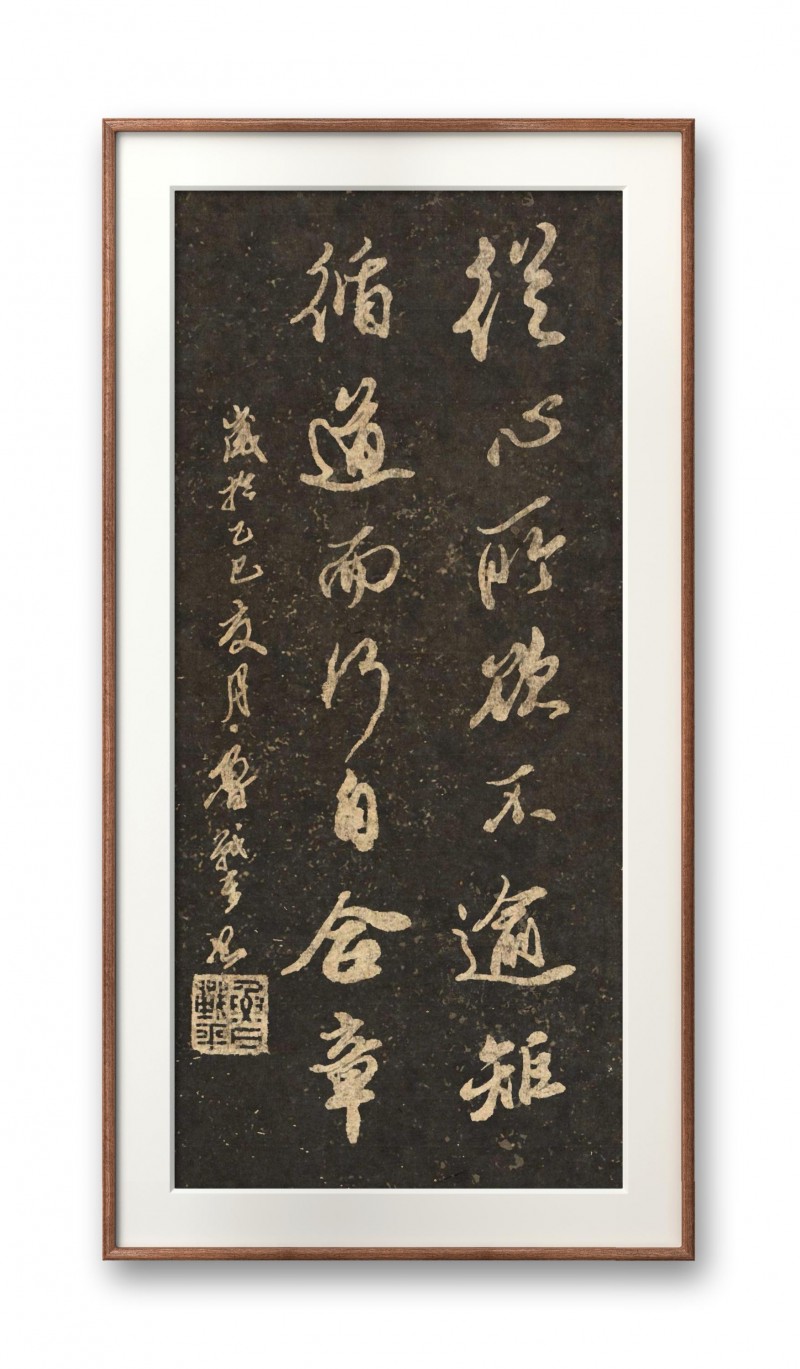 從心所欲不逾矩
循道而行自合章
歲於乙巳夏月